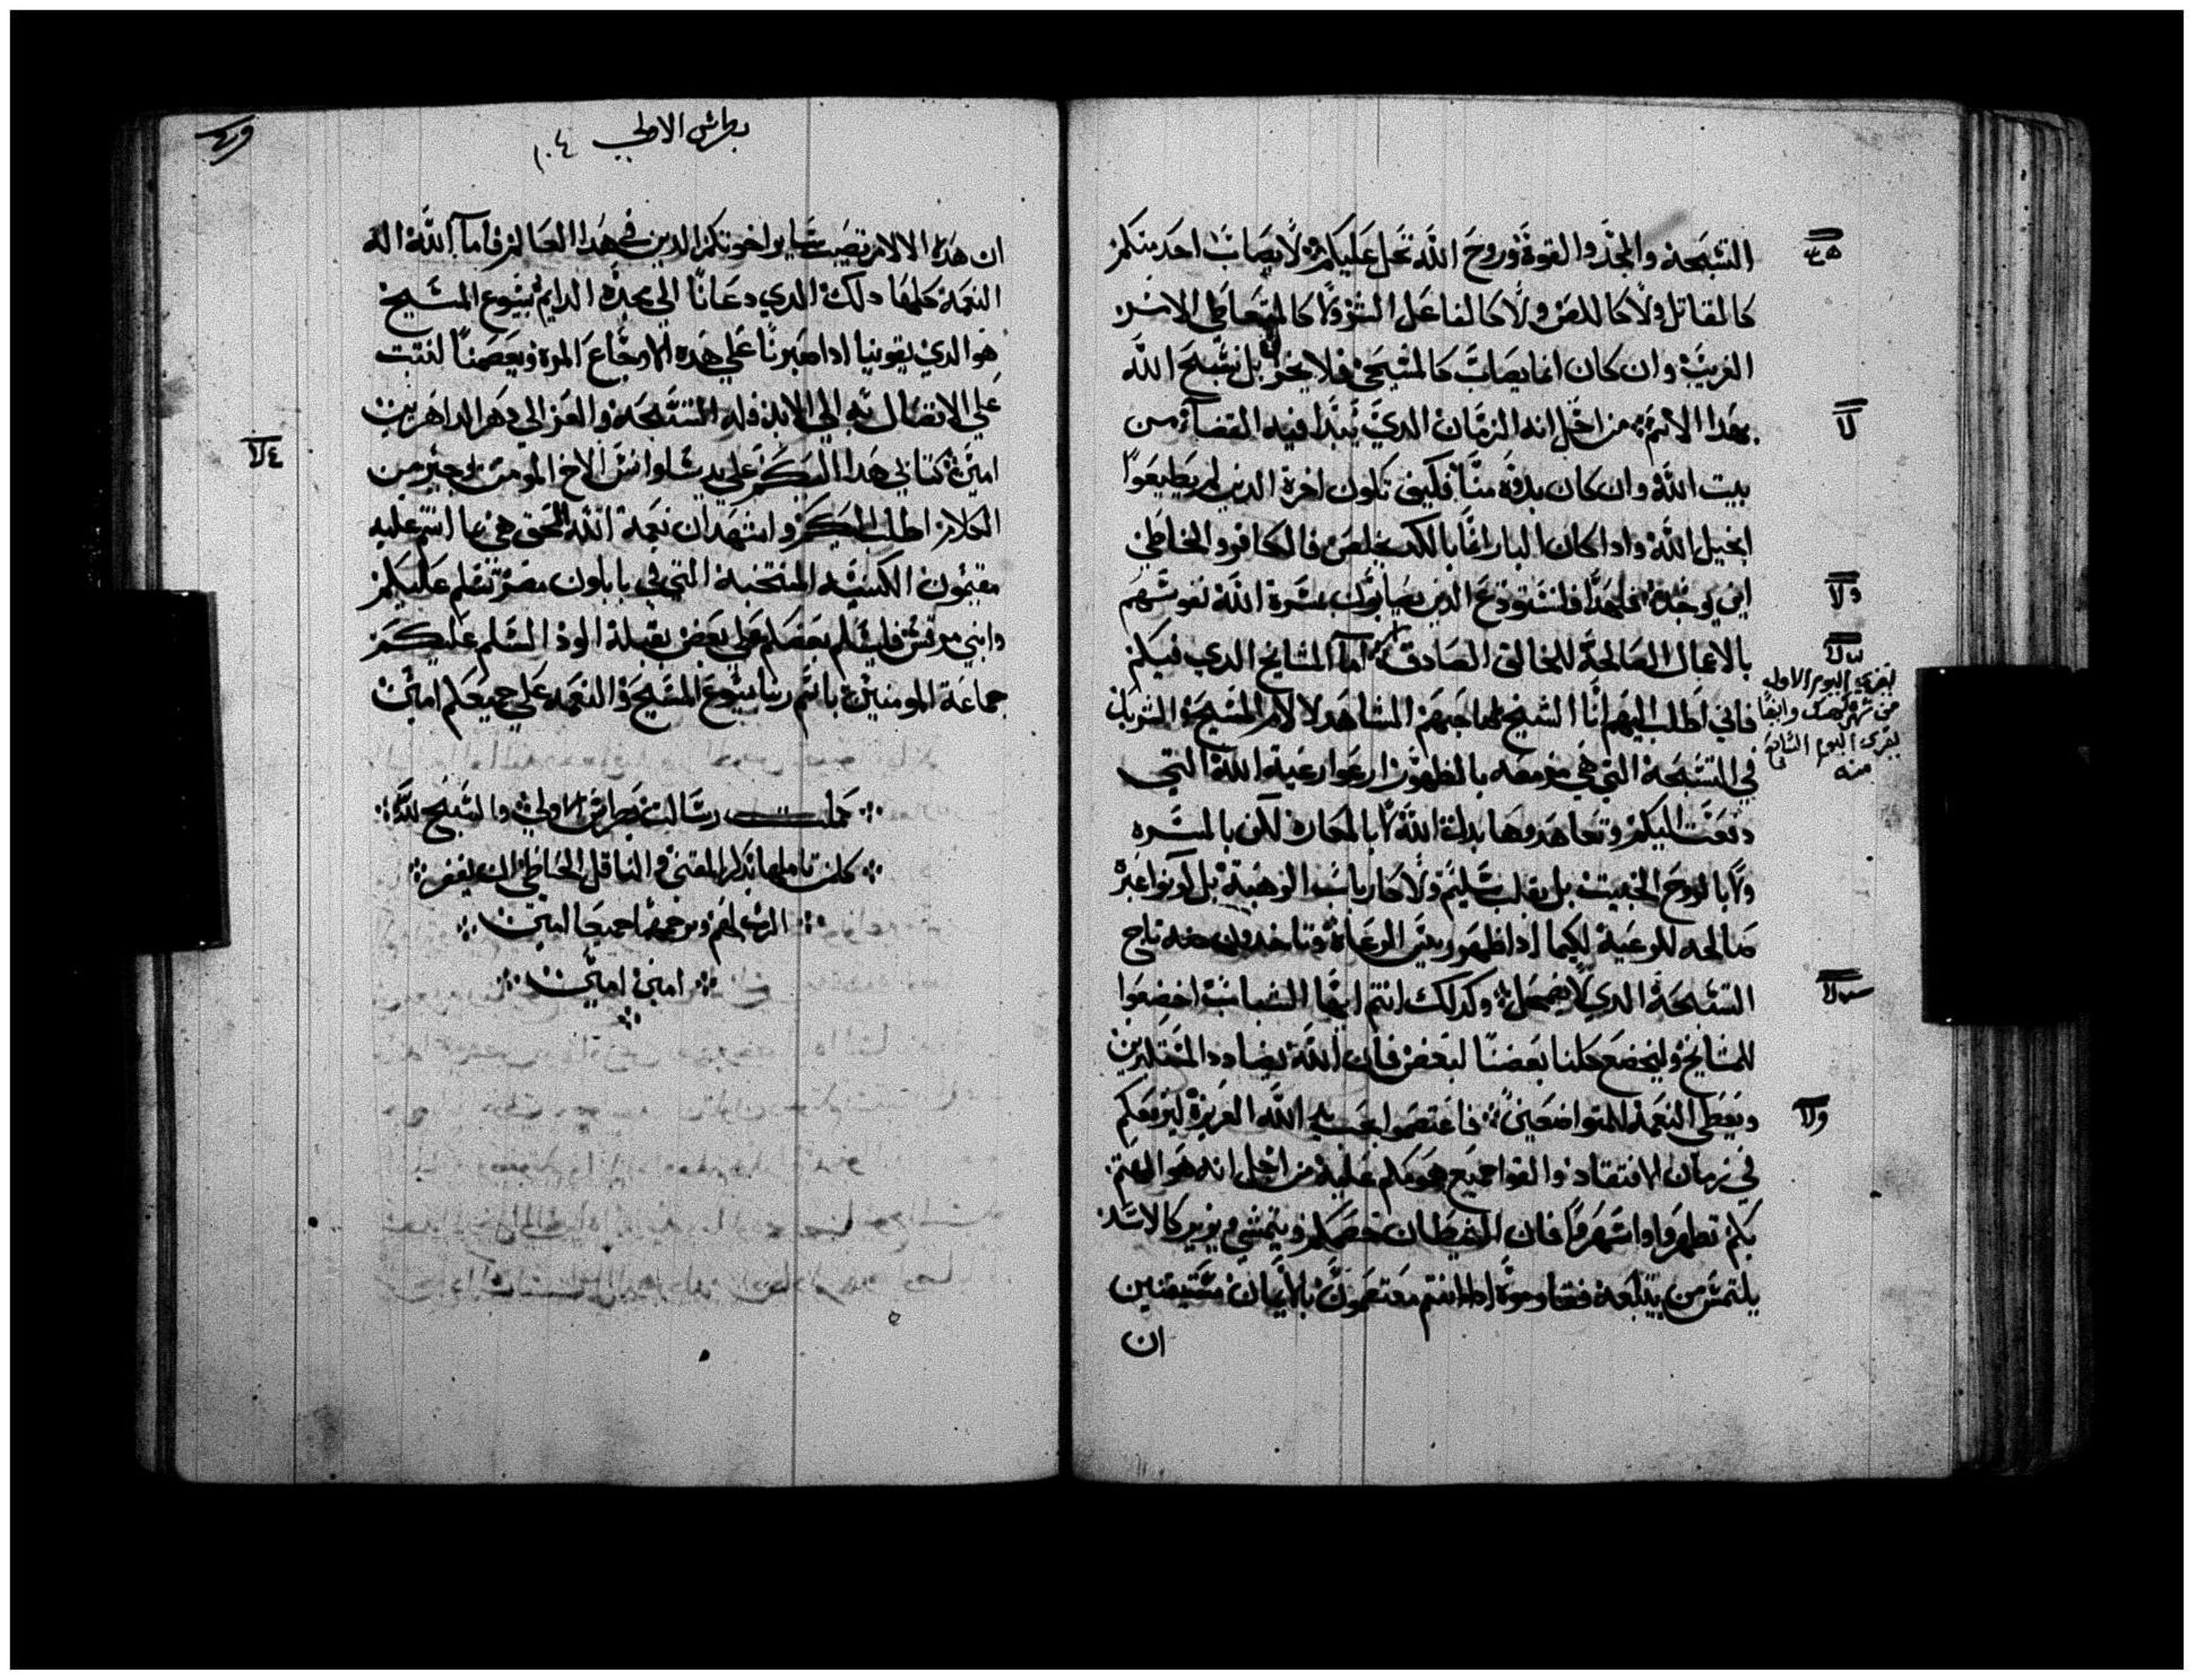 التسبحة والمجد والقوة وروح الله تحل عليكم ولا يصاب احد منكم
كالقاتل ولا كاللص ولا كالفاعل الشر ولا كالمتعاطي الامر
الغريب وان كان انما يصاب كالمسيحي فلا يخز بل يسبح الله
بهدا الاسم من اجل انه الزمان الدي يبتدا فيه القضا من
بيت الله وان كان بدوه منا فكيف تكون اخرة الدين لم يطيعوا
انجيل الله وادا كان البار انما بالكد يخلص فالكافر والخاطي
اين يوجد فلهدا فلنستودع الدين يصابون بمسرة الله نفوسهم
بالاعمال الصالحة للخالق الصادق اما المشايخ الدي فيكم
فاني اطلب اليهم انا الشيخ صاحبهم الشاهد لالام المسيح الشريك
في التسبحة التي هي مزمعه بالظهور ارعوا رعية الله التي
دفعت اليكم وتعاهدوها بدات الله لا بالمكاره لكن بالمسره
ولا بالروح الخبيث بل بقلب سليم ولا كارباب الوهبة بل كونوا عبرة
صالحه للرعية لكيما ادا ظهر رييس الرعاة وتاخدون منه تاج
التسبحة الدي لا يضمحل وكدلك انتم ايها الشباب اخضعوا
للمشايخ وليخضع كلنا بعضنا لبعض فان الله يضادد المتكبرين
ويعطى النعمة للمتواضعين فاعتصموا تحت يد الله العزيزة ليرفعكم
في زمان الافتقاد والقوا جميع همومكم عليه من اجل انه هو المهتم
بكم تطهروا واسهروا فان الشيطان خصمكم ويتمشي يزير كالاسد
يلتمس من يبتلعه فقاوموه ادا انتم معتصمون بالايمان متيقنين
ان
يقري اليوم الاول
من شهر كيهك وايضا
يقري اليوم الثاني
منه
بطرس الاولي ١٠٤
ان هده الالام تصيب ساير اخوتكم الدين في هدا العالم فاما الله اله
النعمة كلها دلك الدي دعانا الي مجده الدايم بيسوع المسيح
هو الدي يقوينا ادا صبرنا علي هده الاوجاع المرة ويعصمنا لنثبت
علي الاتصال به الي الابد فله التسبحة والعز الي دهر الداهرين
امين كتابي هدا اليكم علي يد سلوانس الاخ المومن يجير من
الكلام اطلب اليكم واشهد ان نعمة الله الحق هي ما انتم عليه
مقيمون الكنيسه المنتخبة التي في بابلون مصر تسلم عليكم
وابني مرقس فليسلم بعضكم علي بعض بقبلة الود السلم عليكم
جماعة المومنين باسم ربنا يسوع المسيح والنعمه علي جميعكم امين
كملت رسالت بطرس الاولي والتسبيح لله
كلمن تاملها بدكر المقتني والناقل الخاطي الرب يغفر
الرب لهم ويرحمهما جميعا امين
امين امين